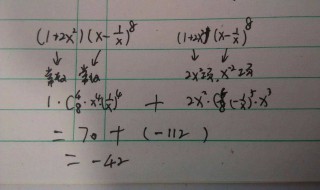 (1+2x²)(x-1/x)⁸ (1+2x²)(x-1/x)⁸
↓ ↓ ↓ ↓
常数 常数 2x²项 x⁻²项
1·C⁴₈·x⁴(1/x)⁴ + 2x²·C⁵₈(-1/x)⁵·x³
= 70 + (-112)
= -42